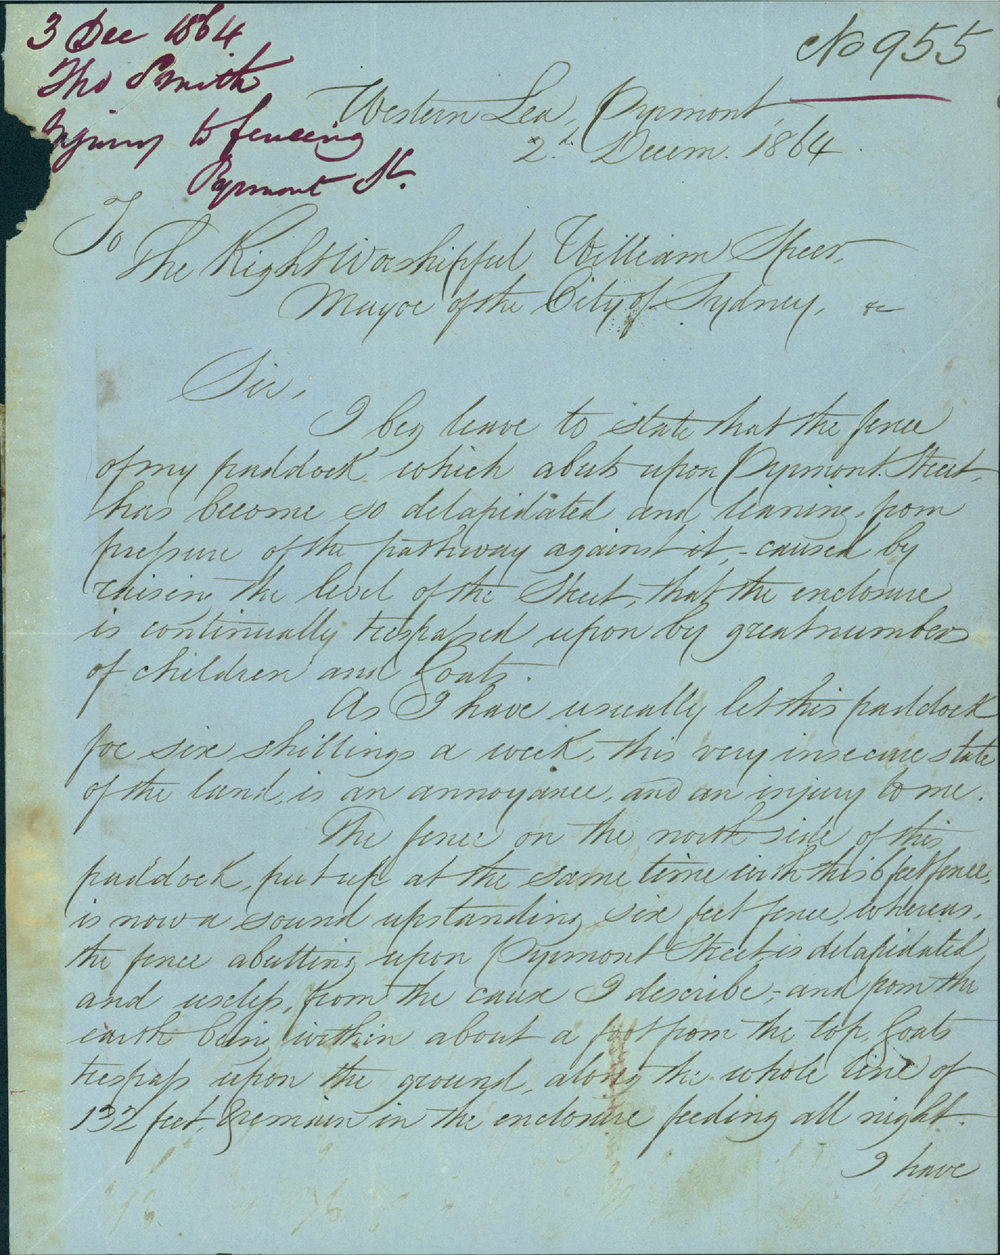 3 Dec 1864
Tho Smith
Injury to fencing
Pyrmont St.
No 955
Western Lea, Pyrmont
2d Decem. 1864.
To
The Right Worshipful William Speer,
Mayor of the City of Sydney, &c
Sir,
I beg leave to state that the fence
of my paddock which abuts upon Pyrmont Street,
has become so delapidated and leaning, from
pressure of the pathway against it, - caused by
raising the level of the Street, that the enclosure
is continually trespassed upon by great numbers
of children and Goats.
As I have usually let this paddock
for six shillings a week, this very insecure state
of the land, is an annoyance, and an injury to me.
The fence on the north side of this
paddock, put up at the same time with this 6 feet fence,
is now a sound upstanding six feet fence, whereas,
the fence abutting upon Pyrmont Street is delapidated
and useless, from the cause I describe, - and from the
earth being within about a foot from the top, Goats
trespass upon the ground, along the whole line of
132 feet, & remain in the enclosure feeding all night.
I have